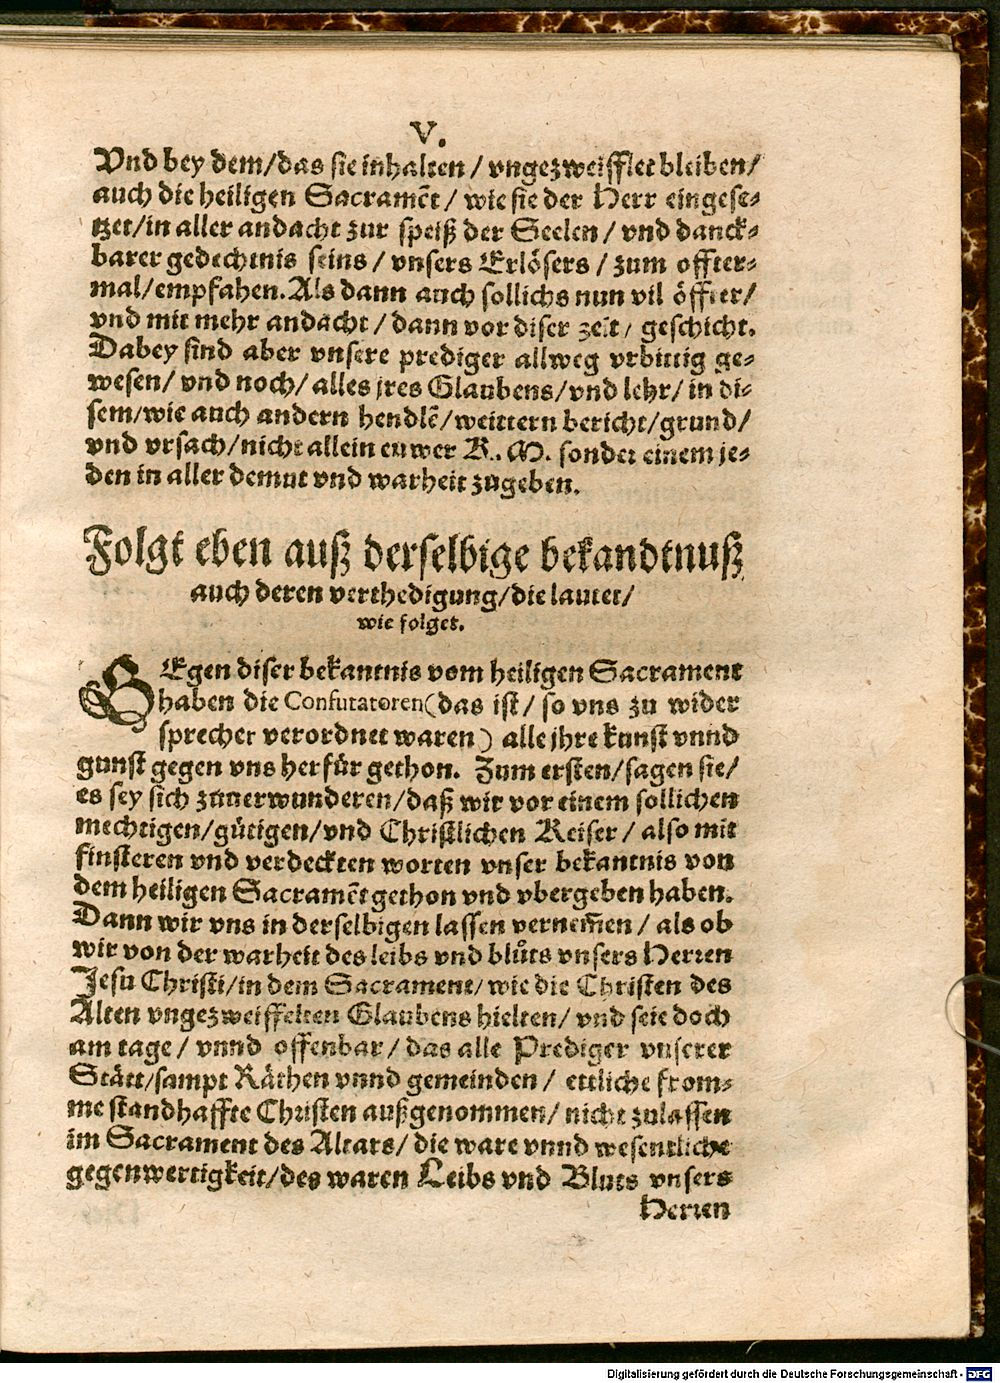 V.
Vnd bey dem/das sie inhalten / vngezweifflet bleiben/
auch die heiligen Sacramēt / wie sie der Herr eingese-
tzet/in aller andacht zur speiß der Seelen / vnd danck-
barer gedechtnis seins / vnsers Erlösers / zum offter-
mal/empfahen. Als dann auch sollichs nun vil öffter/
vnd mit mehr andacht / dann vor diser zeit / geschicht.
Dabey sind aber vnsere prediger allweg vrbittig ge-
wesen/ vnd noch/ alles jres Glaubens/vnd lehr/ in di-
sem/wie auch andern hendlē/weittern bericht/grund/
vnd vrsach/nicht allein euwer K. M. sonder einem je-
den in aller demut vnd warheit zůgeben.
Folgt eben auß derselbige bekandtnuß
auch deren verthedigung/die lautet/
wie folget.
GEgen diser bekantnis vom heiligen Sacrament
haben die Confutatoren (das ist / so vns zu wider
sprecher verordnet waren) alle jhre kunst vnnd
gunst gegen vns herfür gethon. Zum ersten/sagen sie/
es sey sich zůuerwunderen/daß wir vor einem sollichen
mechtigen/gütigen/vnd Christlichen Keiser / also mit
finsteren vnd verdeckten worten vnser bekantnis von
dem heiligen Sacramēt gethon vnd vbergeben haben.
Dann wir vns in derselbigen lassen vernem̄en / als ob
wir von der warheit des leibs vnd blůts vnsers Herren
Jesu Christi/in dem Sacrament/ wie die Christen des
Alten vngezweiffelten Glaubens hielten/ vnd seie doch
am tage / vnnd offenbar / das alle Prediger vnserer
Stätt/sampt Räthen vnnd gemeinden / ettliche from-
me standhaffte Christen außgenommen/ nicht zulassen
im Sacrament des Altars/ die ware vnnd wesentliche
gegenwertigkeit/des waren Leibs vnd Bluts vnsers
Herren
Digitalisierung gefördert durch die Deutsche Forschungsgemeinschaft - DFG